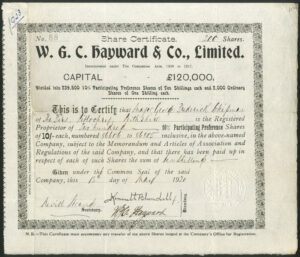 Share Certificate.
No. 88
200 Shares.
W. G. C. Hayward & Co., Limited.
Incorporated under The Companies Acts, 1908 to 1917.
CAPITAL £120,000.
Divided into 239,500 10% Participating Preference Shares of Ten Shillings each and 5,000 Ordinary
Shares of One Shilling each.
This is to Certify that Major George Frederick
of The Firs,
is the Registered
Proprietor of Two Hundred 10% Participating Preference Shares
of 10/- each, numbered to inclusive, in the above-named
Company, subject to the Memorandum and Articles of Association and
Regulations of the said Company, and that there has been paid up in
respect of each of such Shares the sum of Ten Shillings
Given under the Common Seal of the said
Company, this day of 1920
Secretary.
W G Hayward
N.B.—This Certificate must accompany any transfer of the above Shares lodged at the Company's Office for Registration.